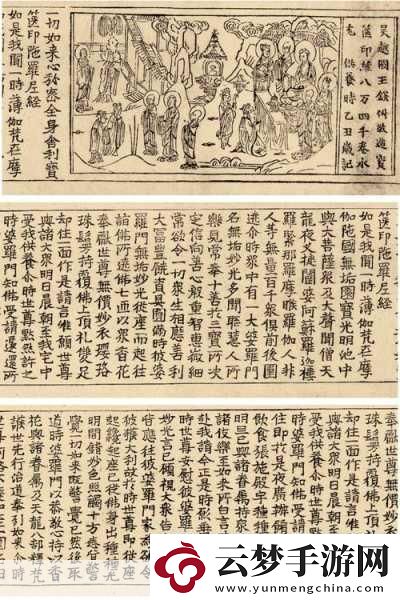 吳越國王錢俶敬造寶
篋印經八万四千卷永
充供養時乙丑歲記
一切如來心秘密全身舍利寶
篋印陁羅尼經
如是我聞一時薄伽梵在摩
篋印陁羅尼經
如是我聞一時薄伽梵在摩
伽陁國無垢園寶光明池中
與大菩薩衆及大聲聞僧天
龍夜叉揵闥婆阿蘇羅迦樓
羅緊那羅摩睺羅伽人非
人等無量百千衆俱前後圍
遶尒時衆中有一大婆羅門
名無垢妙光多聞聦慧人所
樂見常奉十善於三寶所決
定信向善心殷重智惠微細
常欲令一切衆生相應善利
大冨豐饒資具圓滿時彼婆
羅門無垢妙光從座而起往
詣佛所遶佛七匝以衆香花
奉獻世尊無價妙衣瓔珞
珠鬘持覆佛上頂礼雙足
却住一面作是請言唯願世尊
與諸大衆明日晨朝至我宅中
受我供養尒時世尊默然許之
時婆羅門知佛受請遽還所
奉獻世尊無價妙衣瓔珞
珠鬘持覆佛上頂礼雙足
却住一面作是請言唯願世尊
與諸大衆明日晨朝至我宅中
受我供養尒時世尊默然許
時婆羅門知佛受請遽還
住即於是夜廣辦餚饍
飲食張施殿宇種種
明旦已與諸眷屬持衆
諸伎樂至如來所白言
赴我請今正是時願垂
時世尊安慰彼婆羅
妙光言已顧視大衆告
皆應往彼婆羅門家
彼獲大利故於時世尊即從
起纔起座已從佛身出種種光
明間錯妙色照觸十方悉皆警
覺一切如來旣警覺已然後取
道時婆羅門以恭敬心持以香
花與諸眷屬及天龍八部釋梵
護世先行治道奉引如來尒時
云梦手游网
www.yunmengchina.com